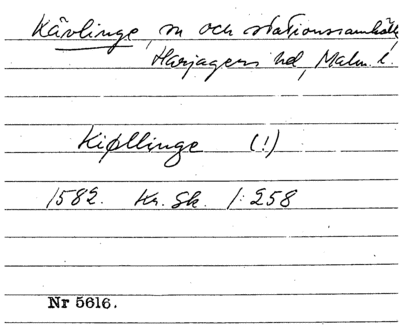 Kävlinge, sn och stationssamhälle,
Harjagers hd, Malm. l.
Kiøllinge (!)
1582. Kr. Sk. 1:258
Nr 5616.